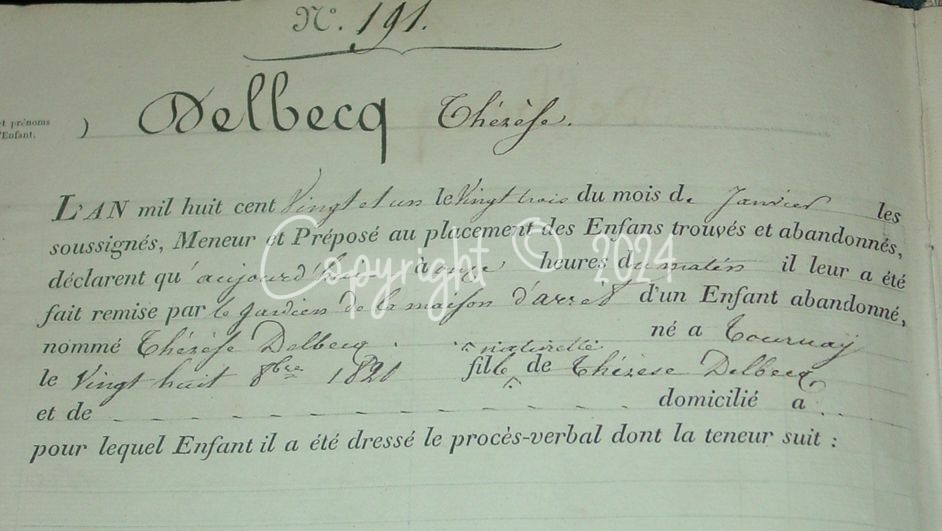 N.° 191.
et prénoms
l'Enfant.
) Delbecq Thérèse.
L'AN mil huit cent Vingt et un le Vingt trois du mois de Janvier les
soussignés, Meneur et Préposé au placement des Enfans trouvés et abandonnés,
déclarent qu'aujourd'hui à onze heures du matin il leur a été
fait remise par le gardien de la maison d'arrêt d'un Enfant abandonné,
nommé Thérèse Delbecq. né a Tournay
naturelle
le Vingt huit 8bre 1820 fille de Thérèse Delbecq
et de domicilié a
pour lequel Enfant il a été dressé le procès-verbal dont la teneur suit :
Copyright © 2024